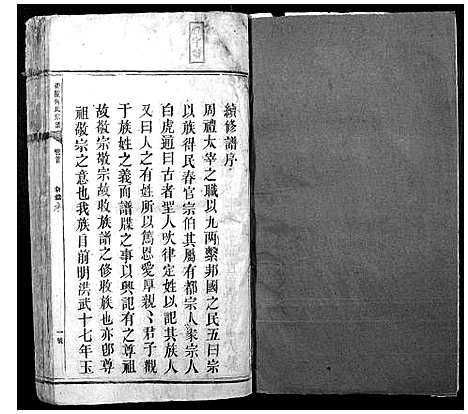 續修譜序
周禮太宰之職以九兩繫邦國之民五曰宗
以族得民春官宗伯其屬有都宗人家宗人
白虎通曰古者聖人吹律定姓以記其族人
又曰人之有姓所以篤恩愛厚親親君子觀
于族姓之義而譜牒之事以興記有之尊祖
故敬宗敬宗故收族譜之修收族也亦卽尊
祖敬宗之意也我族自前明洪武十七年玉
一